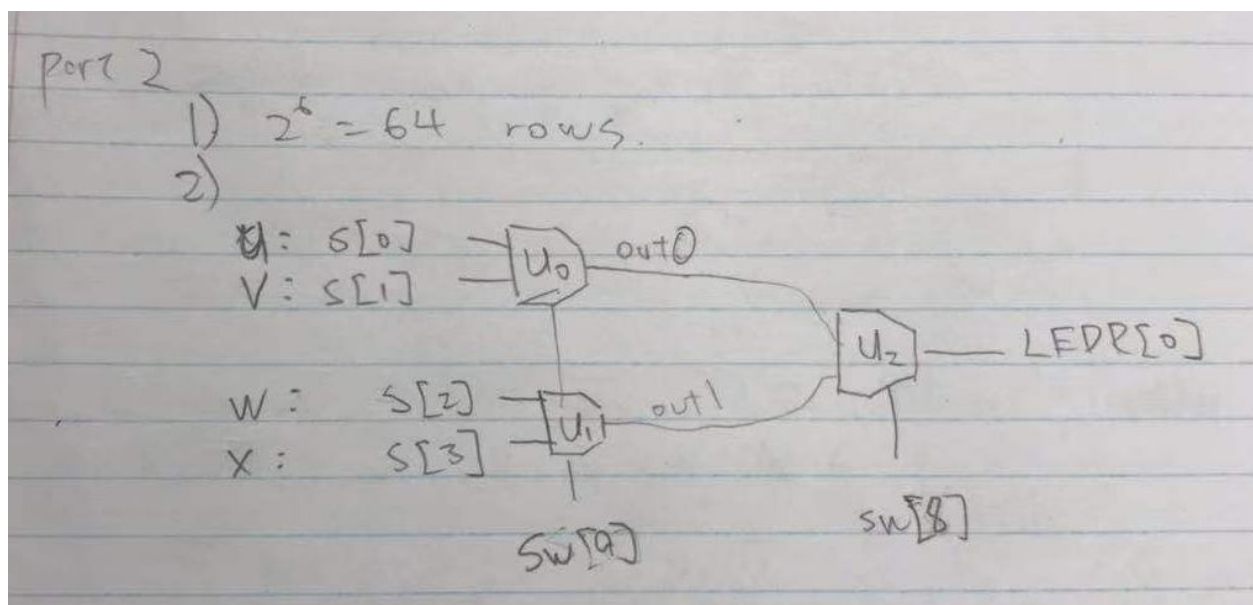 Part 2
1) 2^6 = 64 rows.
2)
U: S[0]
V: S[1]
U0 out0
W: S[2]
X: S[3]
U1 out1
U2 LEDR[0]
SW[9]
SW[8]